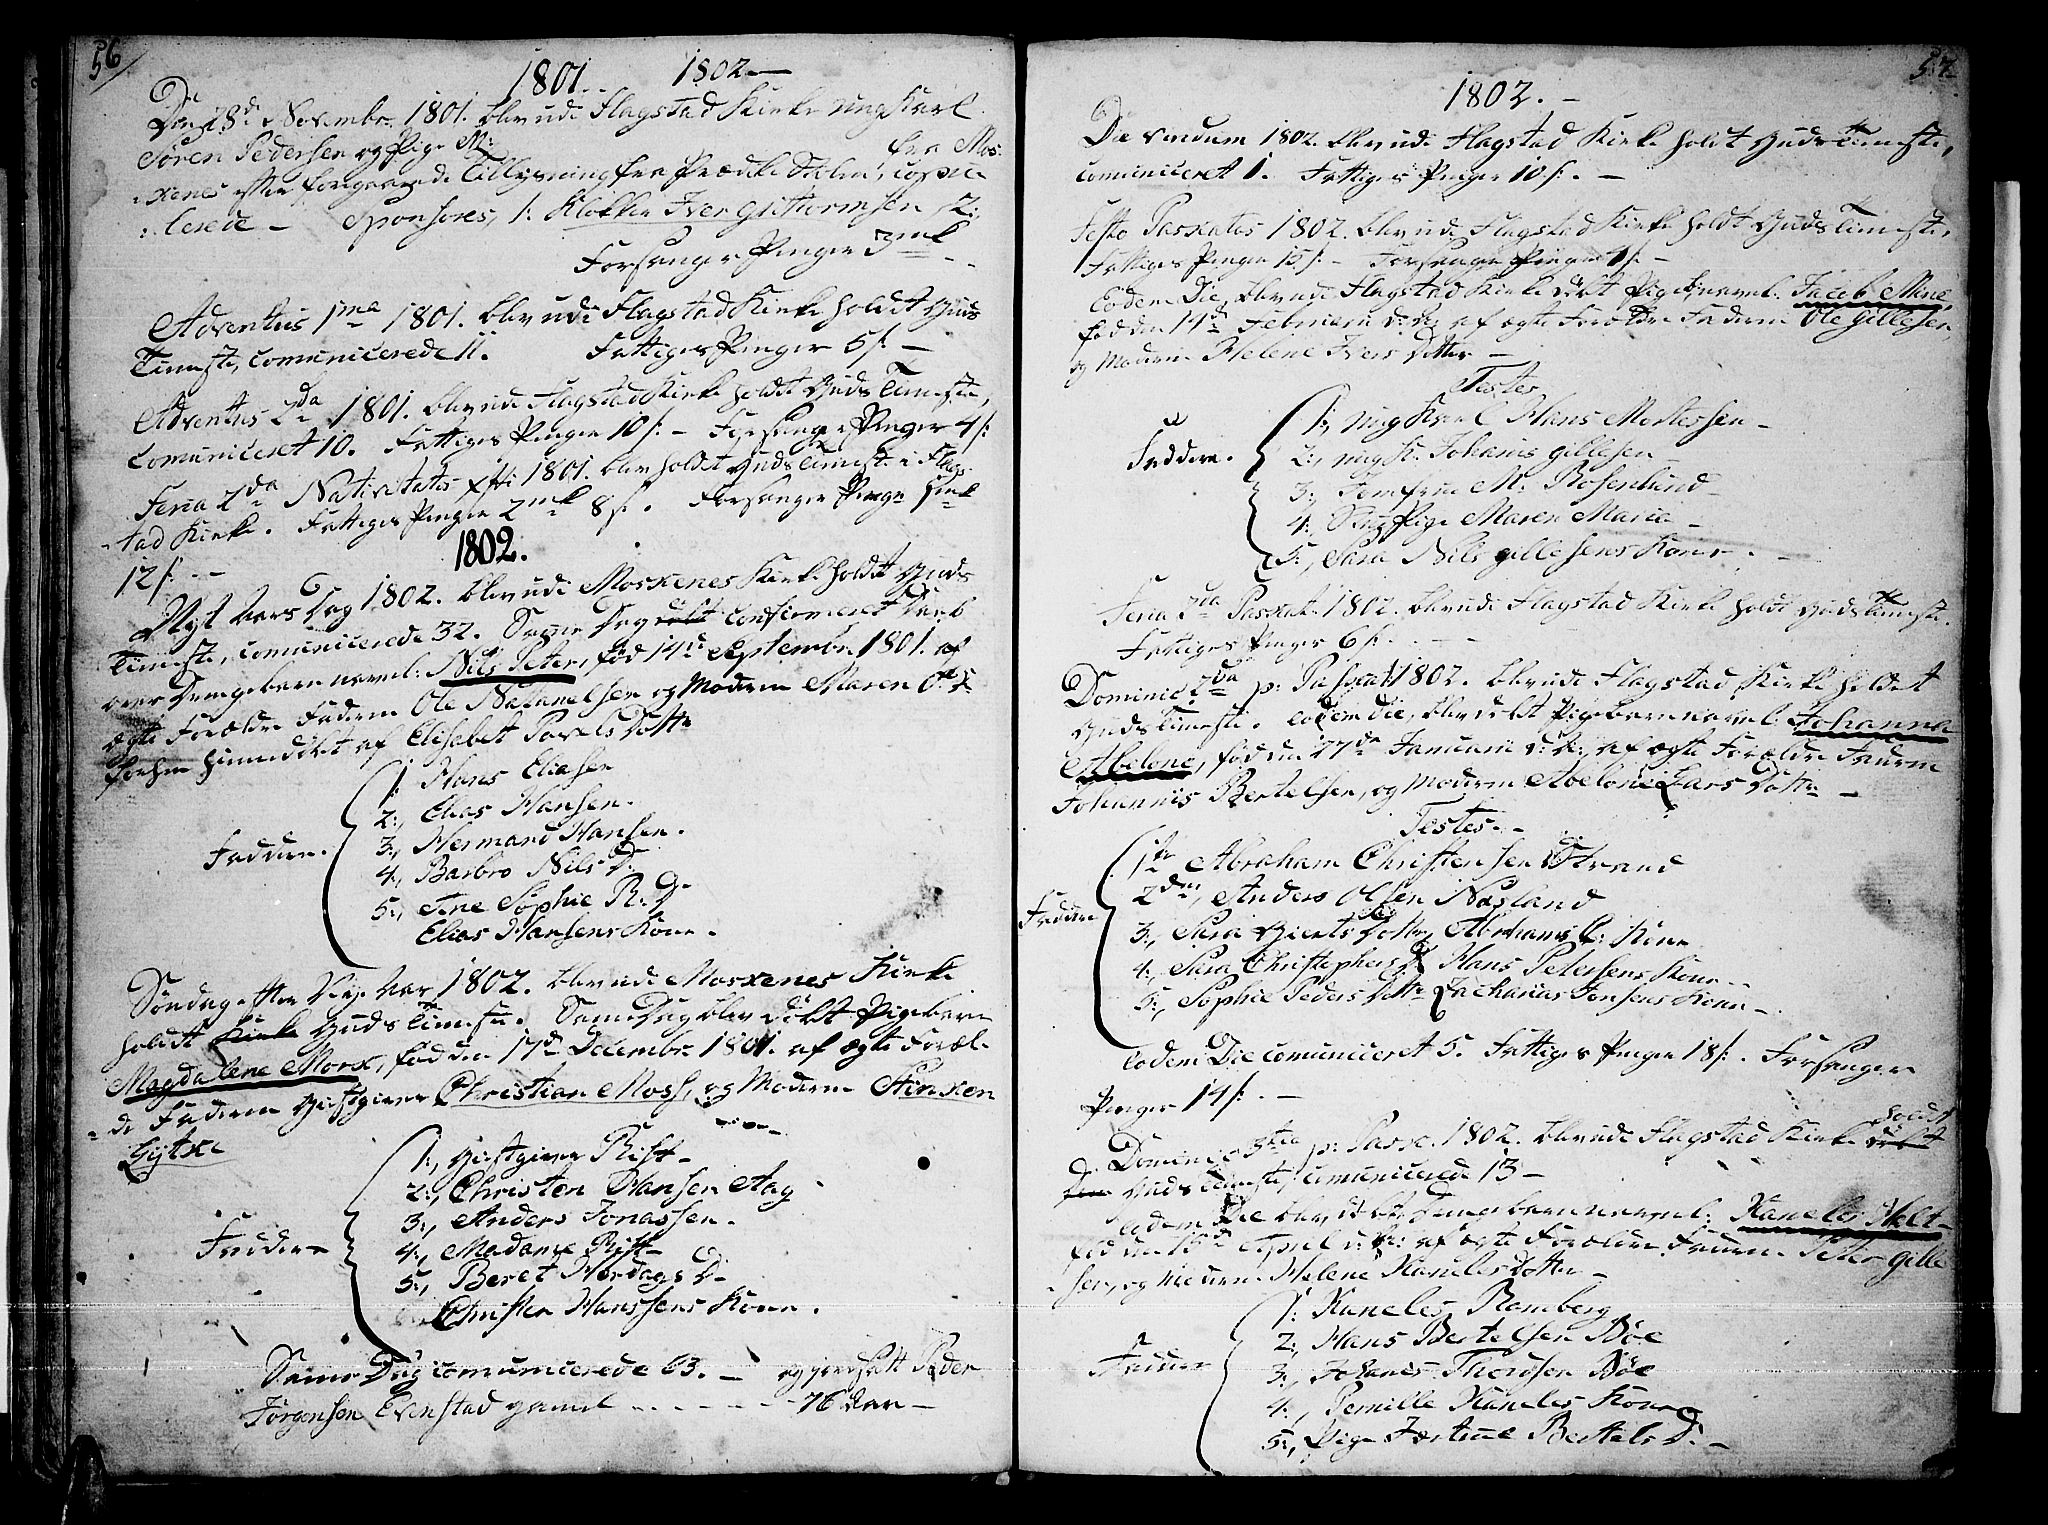 56
1801. 1802 —
Den 28de Novembr. 1801. blev udi Flagstad Kirke ung Karl
Sören Pedersen og Pige M: fra Mos-
-xenes efter foregaaende Tillysning fra Prædike Stolen, copu-
-lerede — Sponsores, 1: Klokker Iver Guttormsen, 2:,
Forsanger Penger 3mk
Adventus 1ma 1801. blev udi Flagstad Kirke holdet Guds
Tieneste, comunicerede 11. Fattiges Penger 5 s. —
Adventus 2da 1801. blev udi Flagstad Kirke holdt Guds Tieneste,
Comuniceret 10. Fattiges Penger 10 s. — Forsanger Penger 4 s.
Feria 2da Nativitatis xsti 1801. blev holdet Guds Tieneste i Flag-
-stad Kirke. Fattiges Penger 2mk 8 s. Forsanger Penge 1mk
12 s. —
1802.
Nyt Aars Dag 1802. blev udi Moskenes Kirke holdet Guds
Tieneste, comunicerede 32. Samme Dag confirmeret Daab
over Drengebarn navnl: Nils Peter, fød 14de Septembr. 1801. af
ægte Forældre Faderen Ole Natanelsen og Moderen Maren
hiemmedöbt af Elisabet Povels Dotter
Faddere.
1: Hans Eliasen
2:, Elias Hansen.
3:, Hermand Hansen.
4:, Barbro Nils D:
5:, Ane Sophie R: D:
Elias Hansens Kone.
Søndag efter Nyt Aar 1802. blev udi Moskenes Kirke
holdt Kirke Guds Tieneste. Same Dag blev døbt Pigebarn
Magdalene Morx, fød den 17de Decembr. 1801. af ægte Foræl-
-dre Faderen Giestgiver Christian Moss, og Moderen Stinken
Lytke
Faddere
1:, Giestgiver Rist —
2:, Christen Hansen Aag
3:, Anders Jonassen.
4:, Madame Rist —
5:, Beret Hordags D —
Christen Hanssens Kone.
Same Dag comunicerede 63. — og jordsatt Peder
Jörgensen Evenstad gamel — — — 76 Aar —
57
1802. —
Die 1802. blev udi Flagstad Kirke holdt Guds Tieneste,
comuniceret 1. Fattiges Penger 10 s. —
Festo Paskatos 1802. blev udi Flagstad Kirke holdt Guds Tieneste,
Fattiges Penger 15 s. — Forsanger Penger 4 s. —
Eodem Die, blev udi Flagstad Kirke døbt Pigeb. navnl. Jacob Mine,
fød den 14de Februarii d: A: af ægte Forældre Faderen Ole Gillesen,
og Moderen Helene Ivers Dotter —
Testes
Faddere.
1:, ung Karl Hans Mortessen —
2:, ung K: Johanis Gillesen —
3:, Jomfrue M: Rosenlund —
4:, Pige Maren Maria —
5:, Sara Nils Gillesens Kone. —
Feria 2da Paskat. 1802. blev udi Flagstad Kirke holdt Guds Tieneste.
Fattiges Penger 6 s. —
Dominic. 2da p: Paskat 1802. blev udi Flagstad Kirke holdet
Guds Tieneste. Eodem die, blev döbt Pigebarn navnl. Johanna
Abelone, fød den 27de Januarii d: A: af ægte Forældre Faderen
Johannis Bertelsen, og Moderen Abelone Lars Dotter —
Testes. —
Faddere
1te Abraham Christensen Strand
2den, Anders Olsen Napland
3:, Sara Gierts Dotter, Abrahams C: Kone
4:, Sara Christophers D Hans Petersens Kone.
5:, Sophie Peders Dotter Zacharias Jensens Kone.
Eodem Die comuniceret 5. Fattiges Penger 18 s. Forsanger
Penger 14 s. —
Dominic. 3tia p: Pask. 1802. blev udi Flagstad Kirke holdt
Guds Tieneste, comunicerede 13 —
Eodem Die blev døbt Drengebarn navnl: Kaneles Holt-
fød den 15de April d: A: af ægte Forældre Faderen Peter Gille-
-sen, og Moderen Helene Kaneles Dotter —
Faddere
1: Kaneles Romberg
2:, Hans Bertelsen Böe
3:, Johanes Thorsen Böe
4:, Pernille Kaneles Kone
5:, Pige Bertels D: —